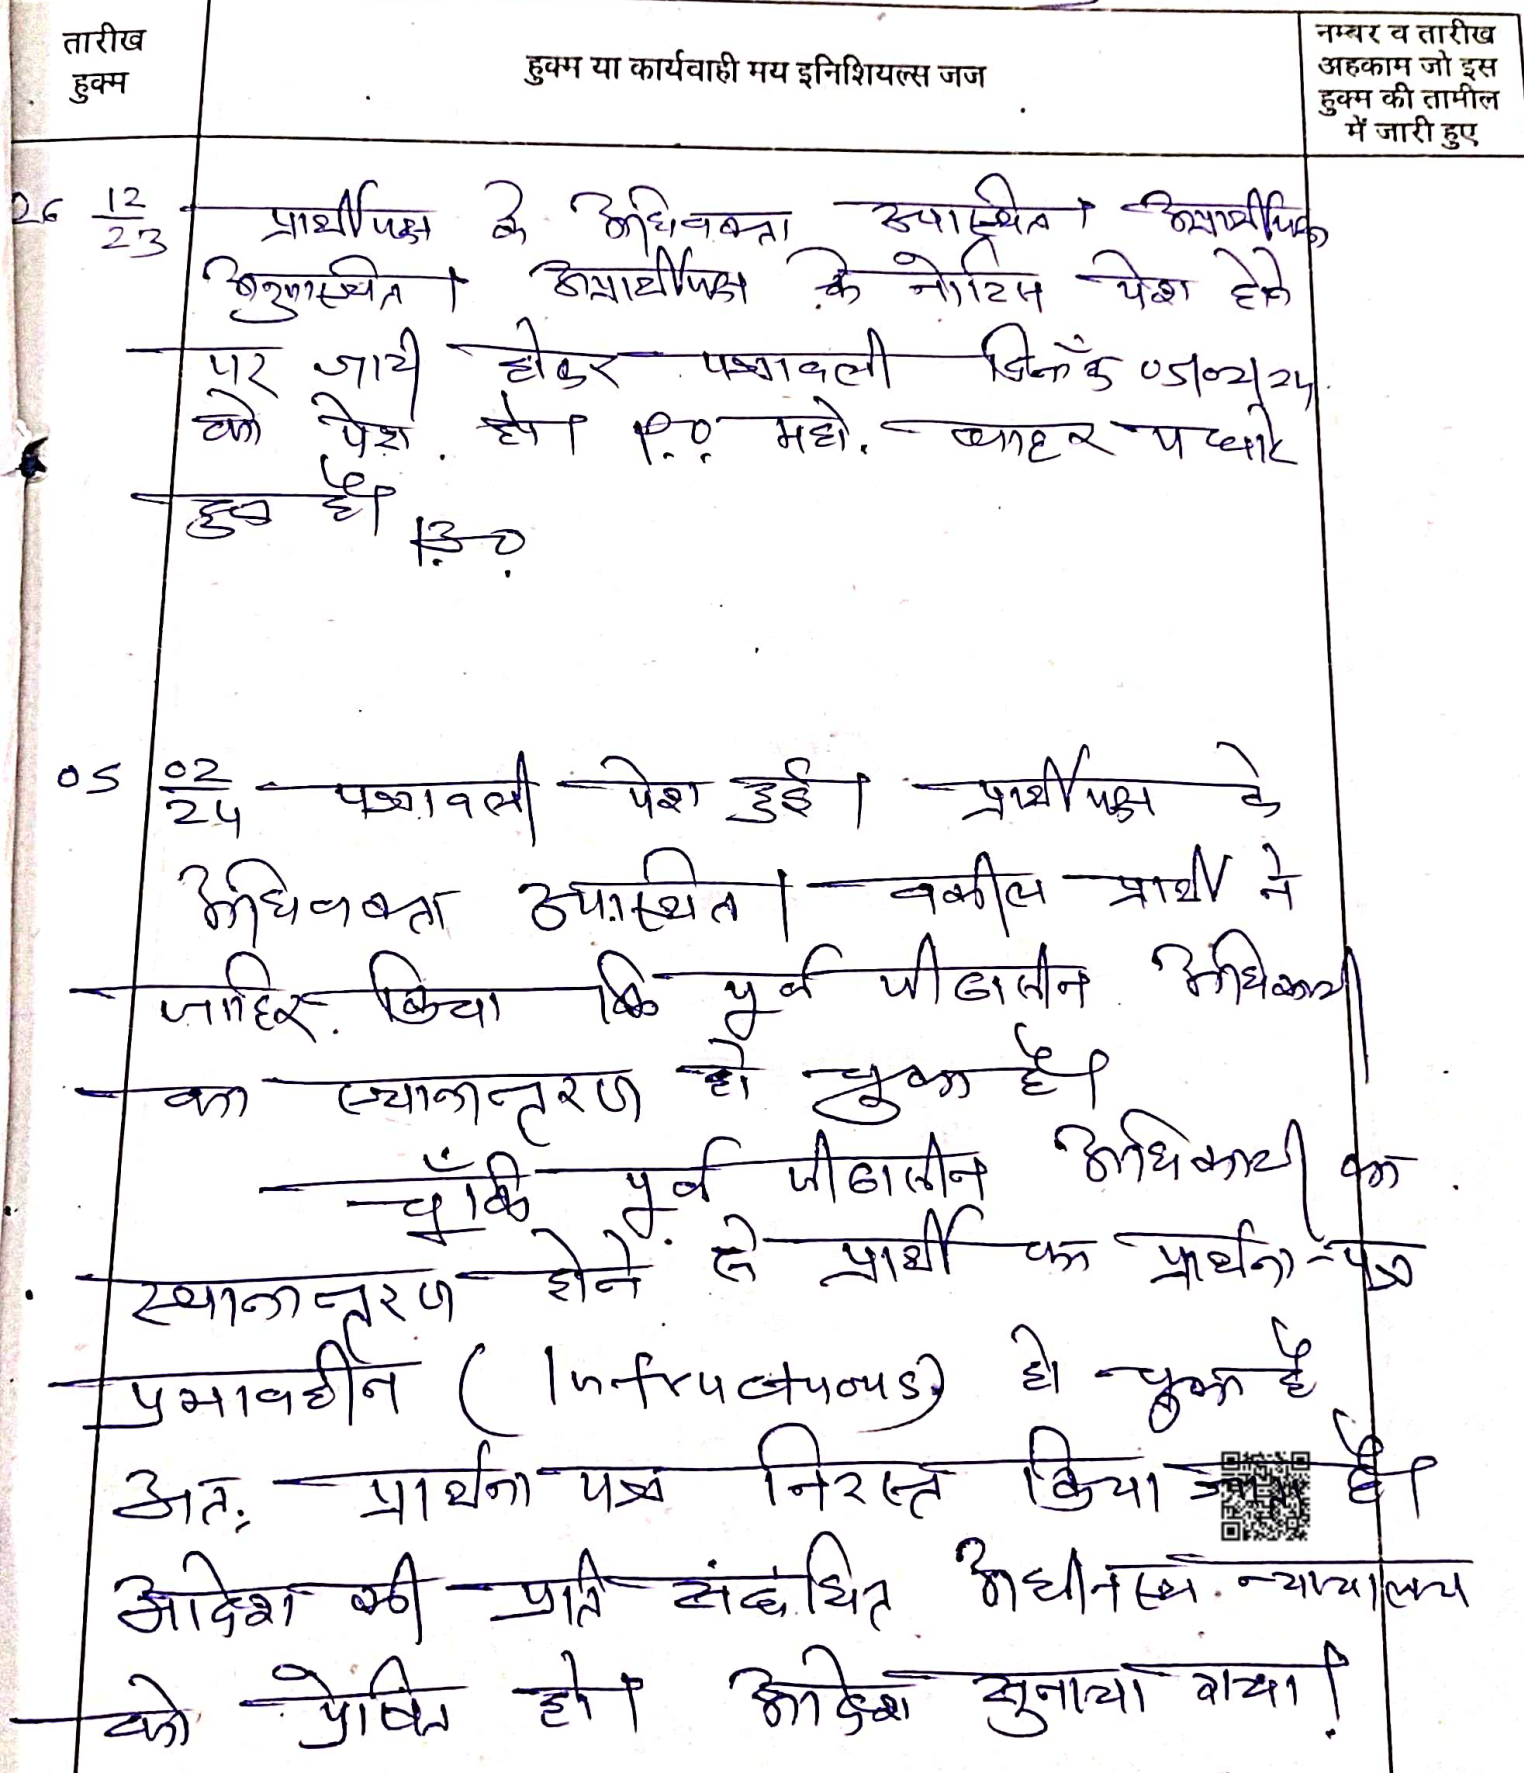 तारीख
हुक्म
हुक्म या कार्यवाही मय इनिशियल्स जज
नम्बर व तारीख
अहकाम जो इस
हुक्म की तामील
में जारी हुए
26 12/23 प्रार्थीपक्ष के अधिवक्ता उपस्थित। अप्रार्थीपक्ष
अनुपस्थित। अप्रार्थीपक्ष के नोटिस पेश होने
पर जारी होकर पत्रावली दिनाँक 05/02/24
को पेश हो। P.O. महो. बाहर पधारे
हुए है।
05 02/24 पत्रावली पेश हुई। प्रार्थीपक्ष के
अधिवक्ता उपस्थित। वकील प्रार्थी ने
जाहिर किया कि पूर्व पीठासीन अधिकारी
का स्थानान्तरण हो चुका है।
चूँकि पूर्व पीठासीन अधिकारी का
स्थानान्तरण होने से प्रार्थी का प्रार्थना-पत्र
प्रभावहीन (Infructuous) हो चुका है
अत: प्रार्थना पत्र निरस्त किया जाता है।
आदेश की प्रति संबंधित अधीनस्थ न्यायालय
को प्रेषित हो। आदेश सुनाया गया।